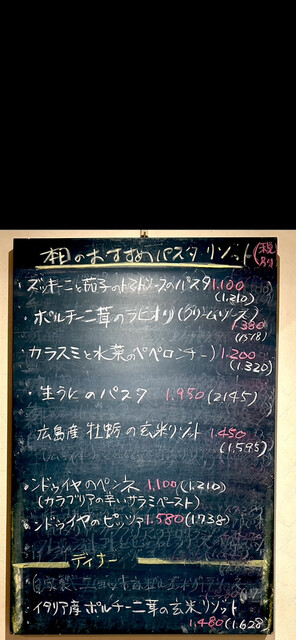 本日のおすすめパスタ リゾット(税別)
・ズッキーニと茄子のトマトソースのパスタ 1.100
(1.210)
・ポルチーニ茸のラビオリ(クリームソース)
1.380
(1518)
・カラスミと水菜のペペロンチーノ 1.200
(1.320)
・生うにのパスタ 1.950(2145)
広島産 牡蛎の玄米リゾット 1.450
(1.595)
・ンドゥイヤのペンネ 1.100(1.210)
(カラブリアの辛いサラミペースト)
・ンドゥイヤのピッツァ 1.580(1738)
ディナー
・イタリア産ポルチーニ茸の玄米リゾット
1.480(1.628)